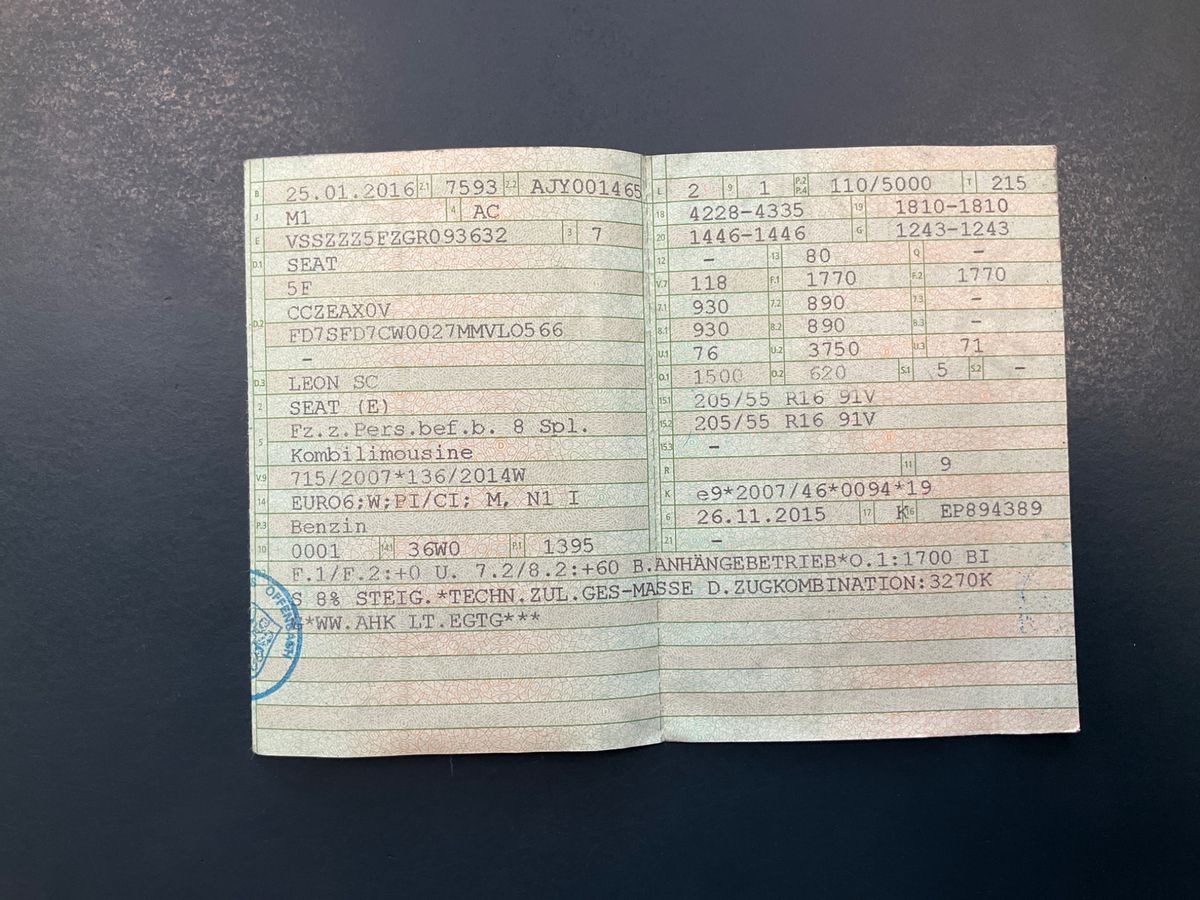 B 25.01.2016 2.1 7593 2.2 AJY001465
J M1 4 AC
E VSSZZZ5FZGR093632 3 7
D.1 SEAT
5F
D.2 CCZEAX0V
FD7SFD7CW0027MMVLO566
–
D.3 LEON SC
2 SEAT (E)
5 Fz.z.Pers.bef.b. 8 Spl.
Kombilimousine
V.9 715/2007*136/2014W
14 EURO6;W;PI/CI; M, N1 I
P.3 Benzin
10 0001 14.1 36W0 P.1 1395
L 2 9 1 P.2 P.4 110/5000 T 215
18 4228-4335 19 1810-1810
20 1446-1446 G 1243-1243
12 – 13 80 Q –
V.7 118 F.1 1770 F.2 1770
7.1 930 7.2 890 7.3 –
8.1 930 8.2 890 8.3 –
U.1 76 U.2 3750 U.3 71
O.1 1500 O.2 620 S.1 5 S.2 –
15.1 205/55 R16 91V
15.2 205/55 R16 91V
15.3 –
R 11 9
K e9*2007/46*0094*19
6 26.11.2015 17 K 16 EP894389
21 –
F.1/F.2:+0 U. 7.2/8.2:+60 B.ANHÄNGEBETRIEB*O.1:1700 BI
S 8% STEIG.*TECHN.ZUL.GES-MASSE D.ZUGKOMBINATION:3270K
*WW.AHK LT.EGTG***
OFFENBACH